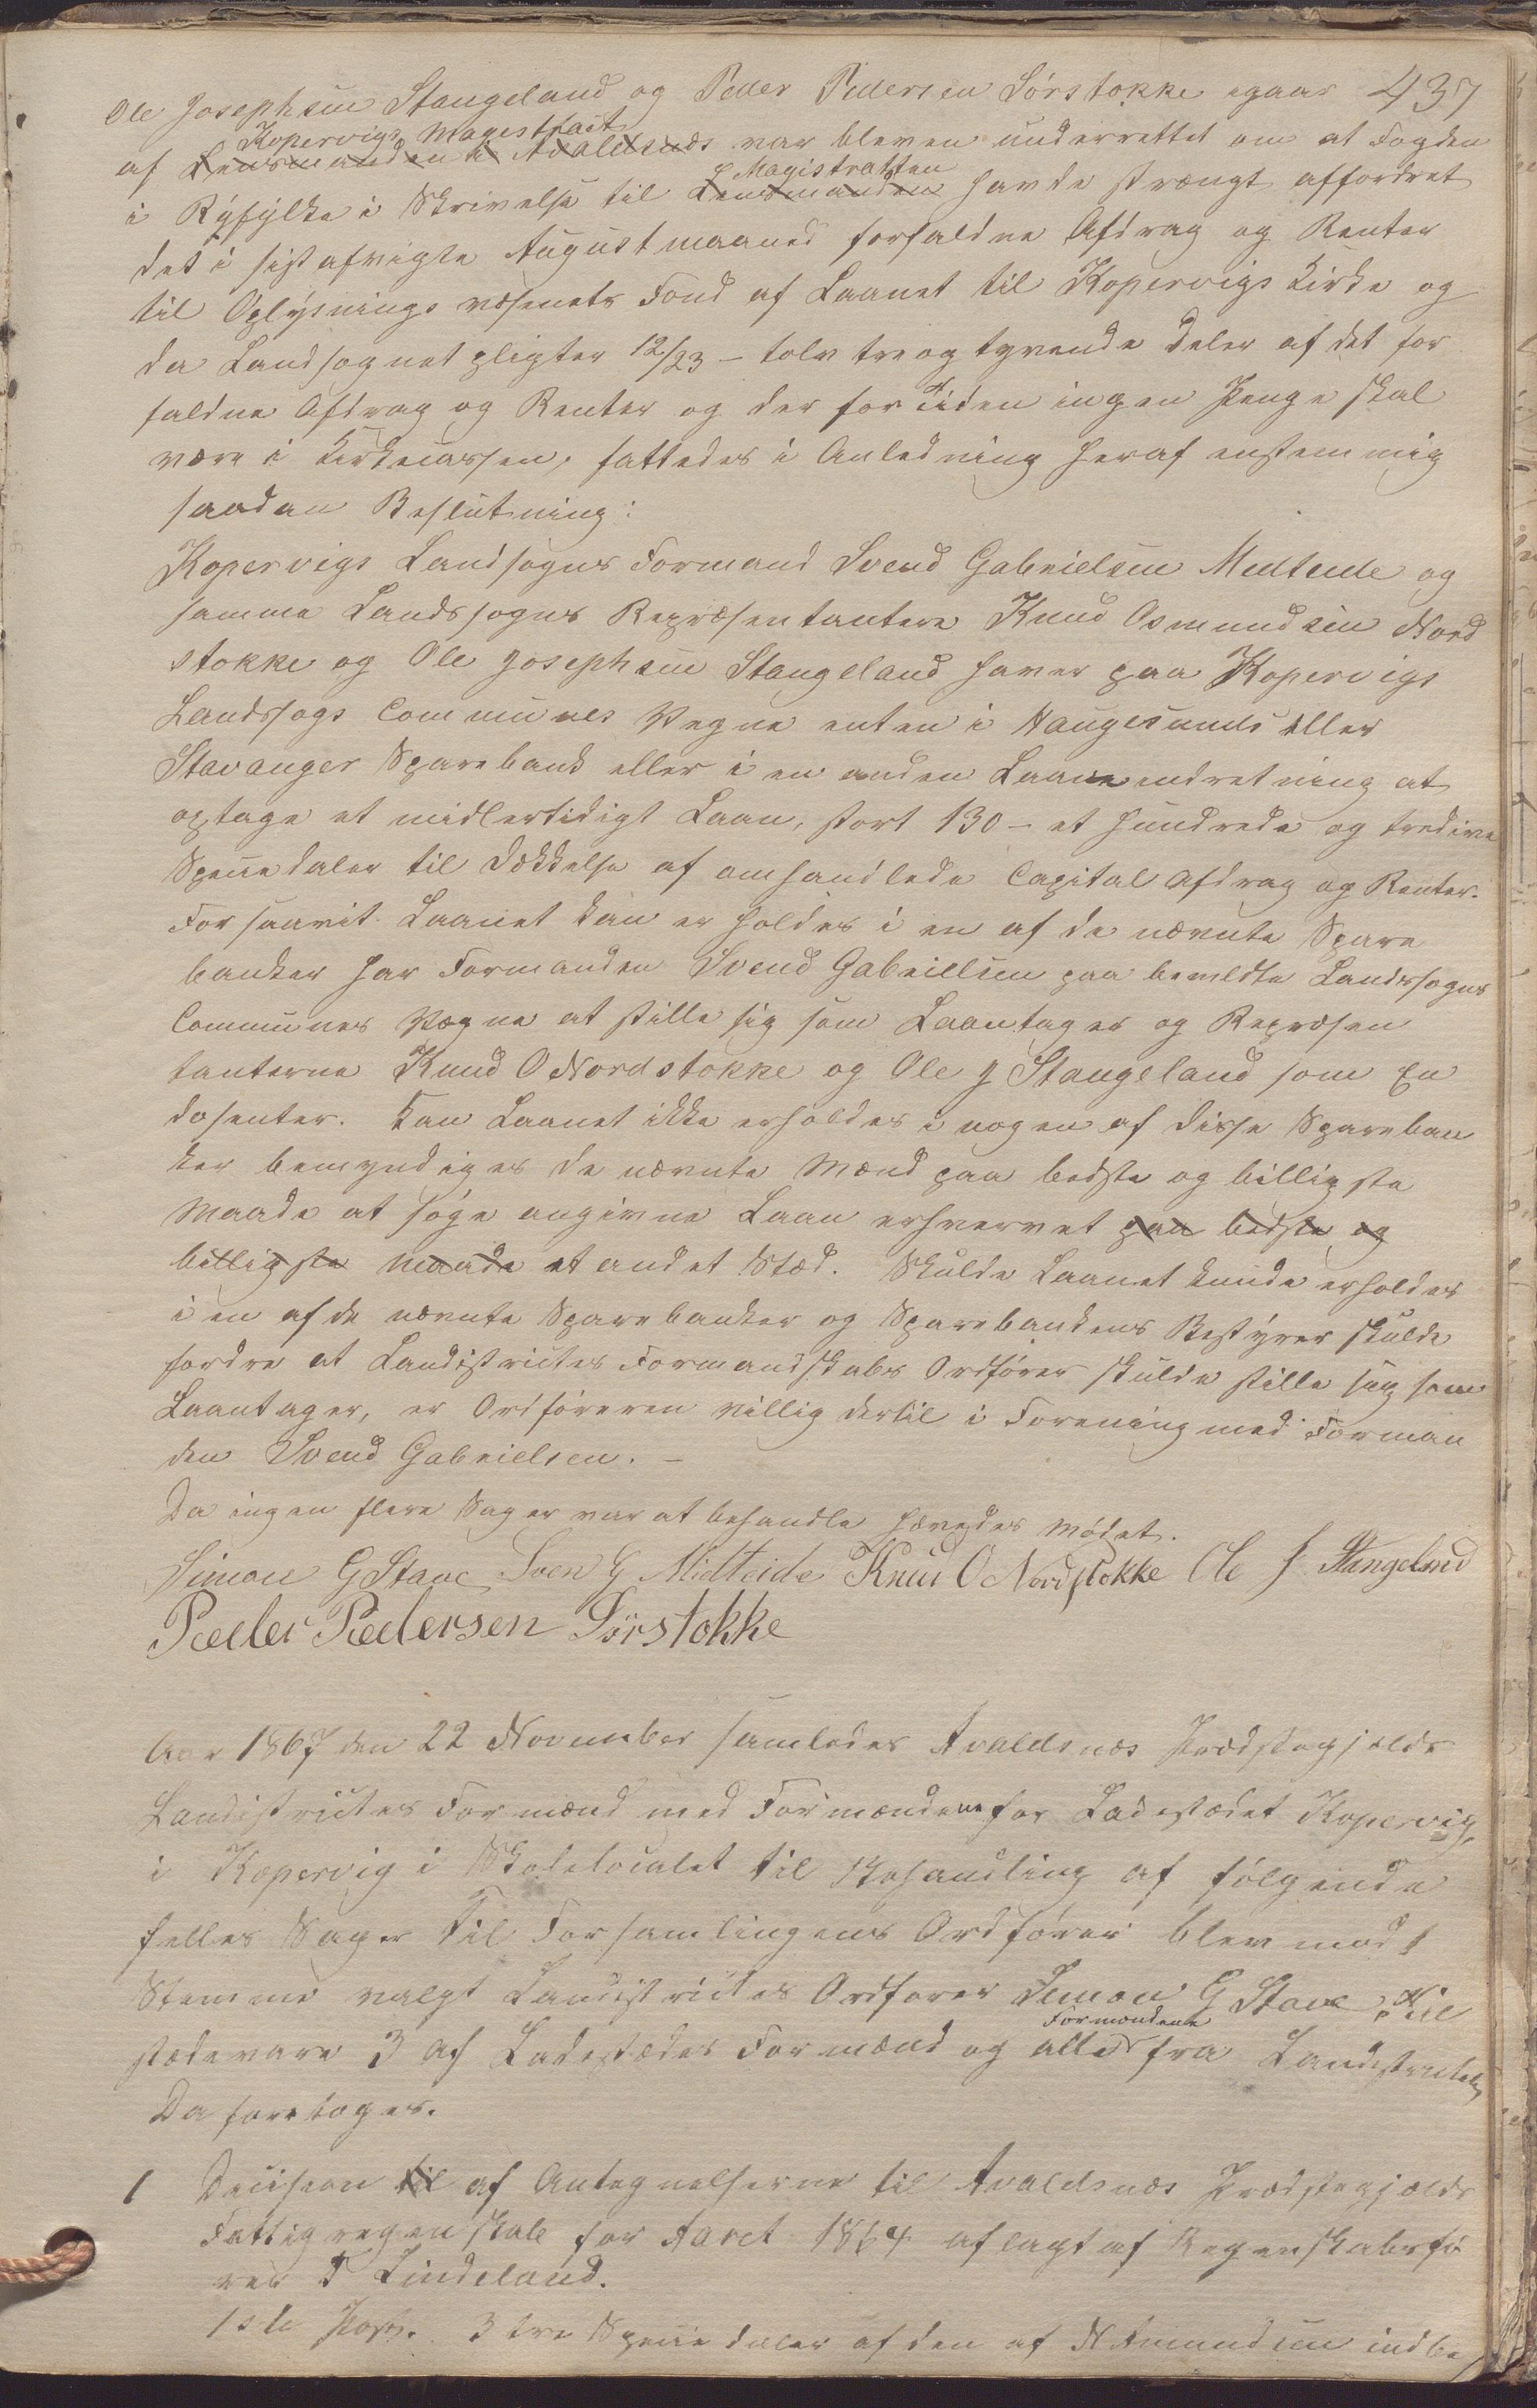 437
Ole Josephsen Stangeland og Peder Pedersen Sörstokke igaar
Kopervigs Magistrat
af Lensmanden i Avaldsnæs var bleven underrettet om at Fogden
Magistratten
i Ryfylke i Skrivelse til Lensmanden havde strængt affordret
det i sistafvigte August maaned forfaldne Afdrag og Renter
til Oplysnings væsenets Fond af Laanet til Kopervigs Kirke og
da Landsognet pligter 12/23 - tolv treogtyvende Deler af det for
faldne Afdrag og Renter og der for Tiden ingen Penge skal
være i Kirkecassen, fattedes i Anledning heraf enstemmig
saadan Beslutning:
Kopervigs Landsogns Formand Svend Gabrielsen Medteide og
samme Landssogns Repræsentantere Knud Osmundsen Nord
stokke og Ole Josephsen Stangeland haver paa Kopervigs
Landssogs Communes Vegne enten i Haugesunds eller
Stavanger Sparebank eller i en anden Laaneindretning at
optage et midlertidigt Laan, stort 130 - et hundrede og tredive
Speciedaler til Dækkelse af omhandlede Capital Afdrag og Renter.
Forsaavit Laanet kan erholdes i en af de nævnte Spare
banker har Formanden Svend Gabrielsen paa bemeldte Landssogns
Communes Vegne at stille sig som Laantager og Repræsen
tanterne Knud O Nordstokke og Ole J Stangeland som En
dosenter. Kan Laanet ikke erholdes i nogen af disse Spareban
ker bemyndiges de nævnte Mænd paa bedste og billigste
Maade at søge angivne Laan erhvervet paa bedste og
billigste Maade et andet Stæd. Skulde Laanet kunde erholdes
i en af de nævnte Sparebanker og Sparebankens Bestyrer skulde
fordre at Landistrictes Formandskabs Ordförer skulde stille sig som
Laantager, er Ordföreren villig dertil i Forening med Forman
den Svend Gabrielsen. -
Da ingen flere Sager var at behandle hævedes Mödet.
Simon G Stave Sven G Midteide Knud O Nordstokke Ole J. Stangeland
Pæder Pædersen Sörstokke
Aar 1867 den 22 November samledes Avaldsnæs Prædstegjælds
Landistrictes Formænd med Formændene for Ladestædet Kopervig,
i Kopervig i Skolelocalet til Behandling af følgende
felles Sager Til Forsamlingens Ordförer blev med 1
Stemme valgt Landistrictes Ordförer Simon G Stave, Til
Formændene
stædevare 3 af Ladestædes Formænd og alle fra Landistrictet,
Da foretoges.
1 Decision til af Antegnelserne til Avaldsnæs Prædstegjælds
Fattigregenskab for Aaret 1864 aflagt af Regenskabsfö
rer T Lindeland.
1ste Post. 3 tre Speciedaler af den af N Amundsen indbe